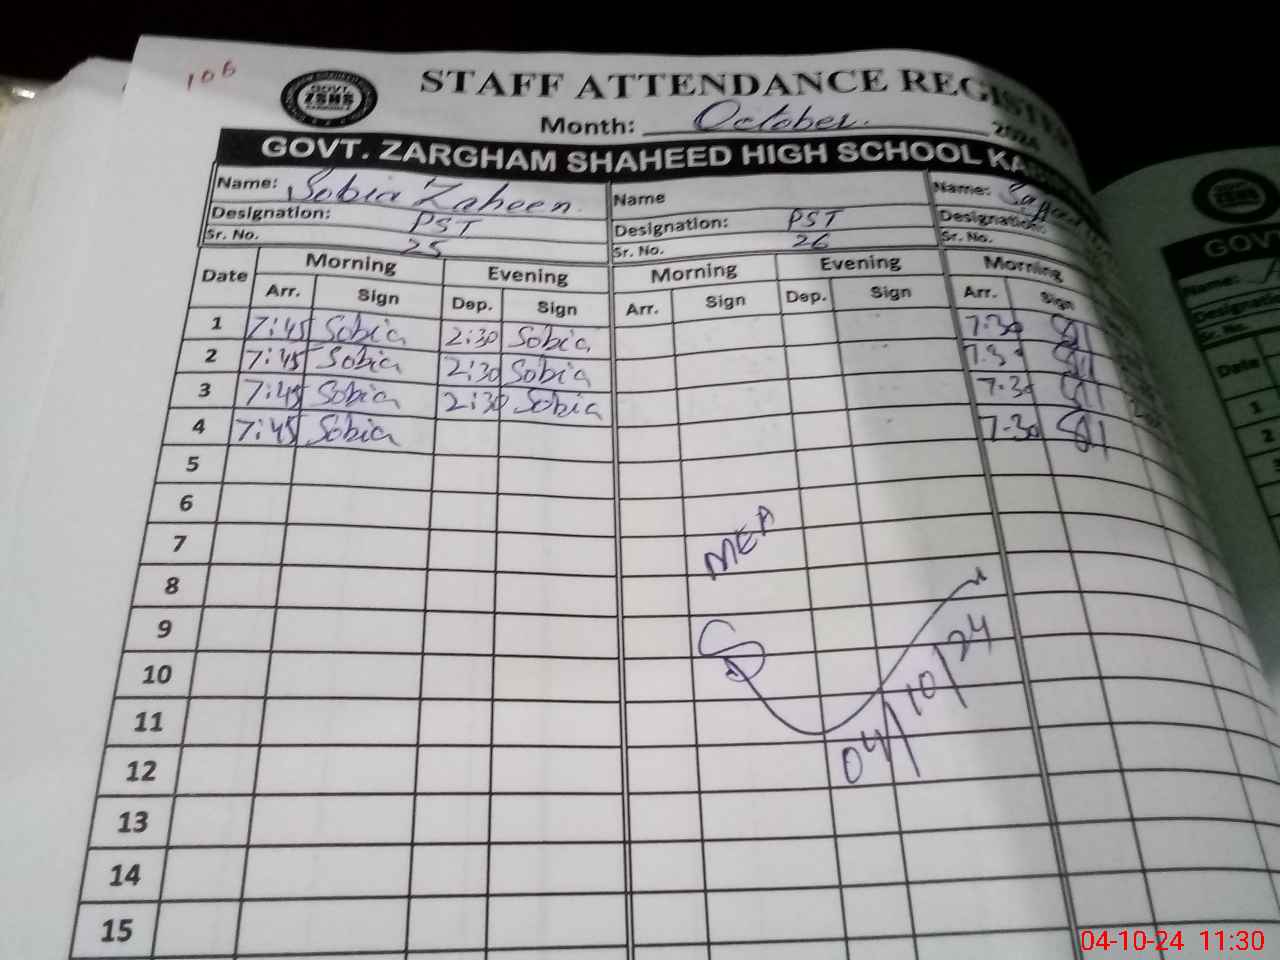 106
GOVT.
ZSHS
STAFF ATTENDANCE REGISTER
Month: October. 2024
GOVT. ZARGHAM SHAHEED HIGH SCHOOL
Name: Sobia Zaheen. Name Name:
Designation: PST Designation: PST Designation:
Sr. No. 25 Sr. No. 26 Sr. No.
Date Morning Evening Morning Evening Morning
Arr. Sign Dep. Sign Arr. Sign Dep. Sign Arr. Sign
1 7:45 Sobia 2:30 Sobia 7-30
2 7:45 Sobia 2:30 Sobia 7-30
3 7:45 Sobia 2:30 Sobia 7-30
4 7:45 Sobia 7-30
5
6
7
MEA
8
9
10
04/10/24
11
12
13
14
15
GOVT
Name:
Sr. No.
Date
1
2
04-10-24 11:30